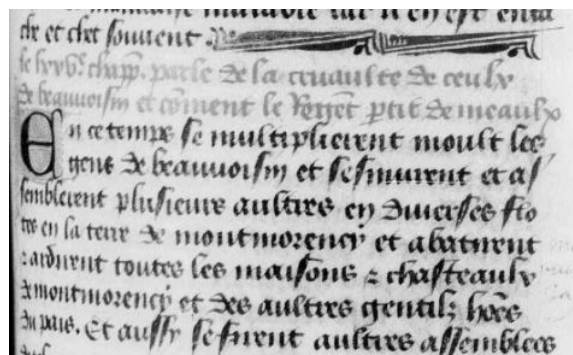 il en est enta
che et chet souvent.
chapp. parle de la cruaulte de ceulx
de beauvoisin et cõment le Regẽt ptit de meaulx
En ce temps se multiplierent moult les
gens de beauvoisin et sesmurent et as
semblerent plusieurs aultres en diverses flo
tes en la terre de montmorency et abatirent
z ardirent toutes les maisons z chasteaulx
de montmorency et des aultres gentilz hões
du pais. Et aussy se firent aultres assemblees